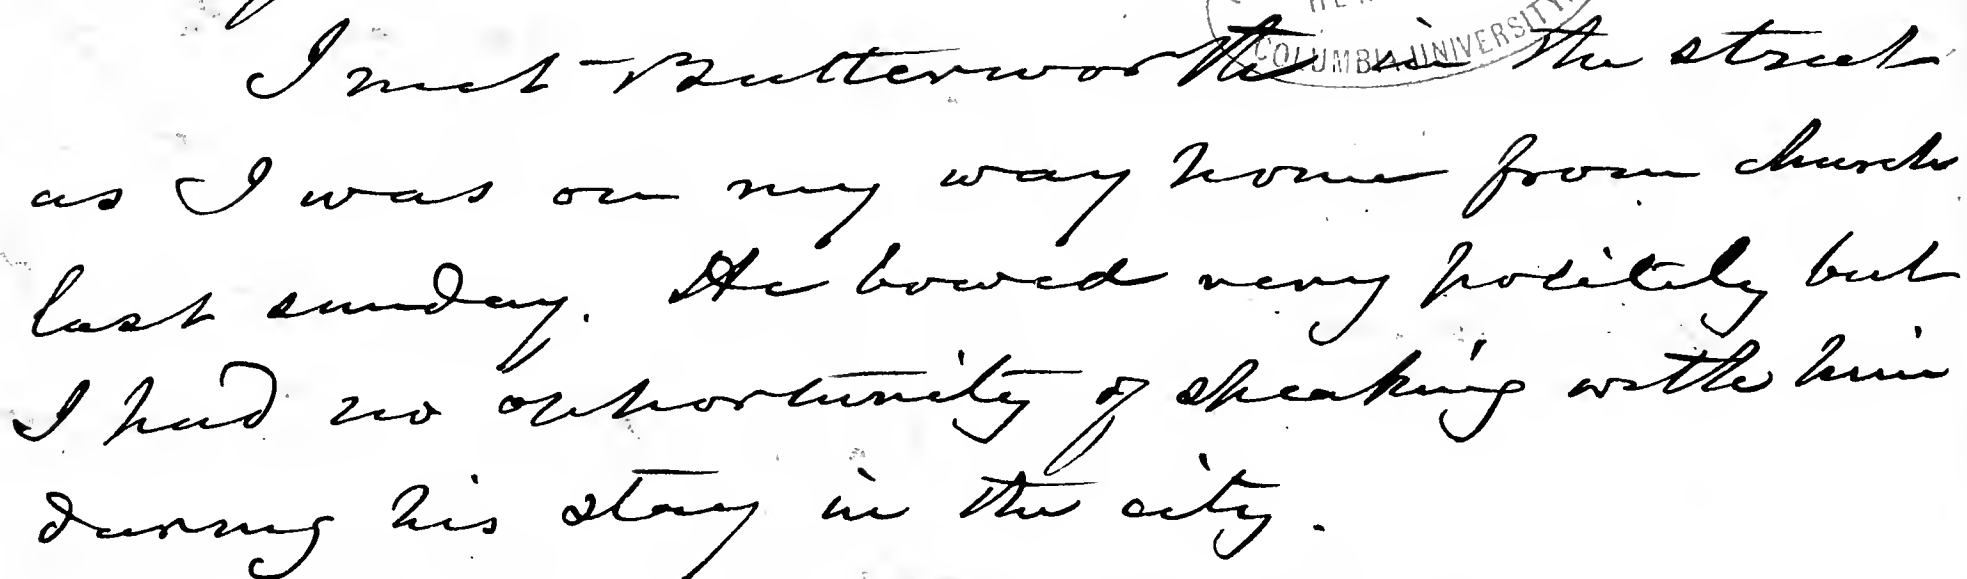 COLUMBIA UNIVERSITY
I met Butterworth in the street
as I was on my way home from church
last sunday. He bowed very politely but
I had no opportunity of speaking with him
during his stay in the city.